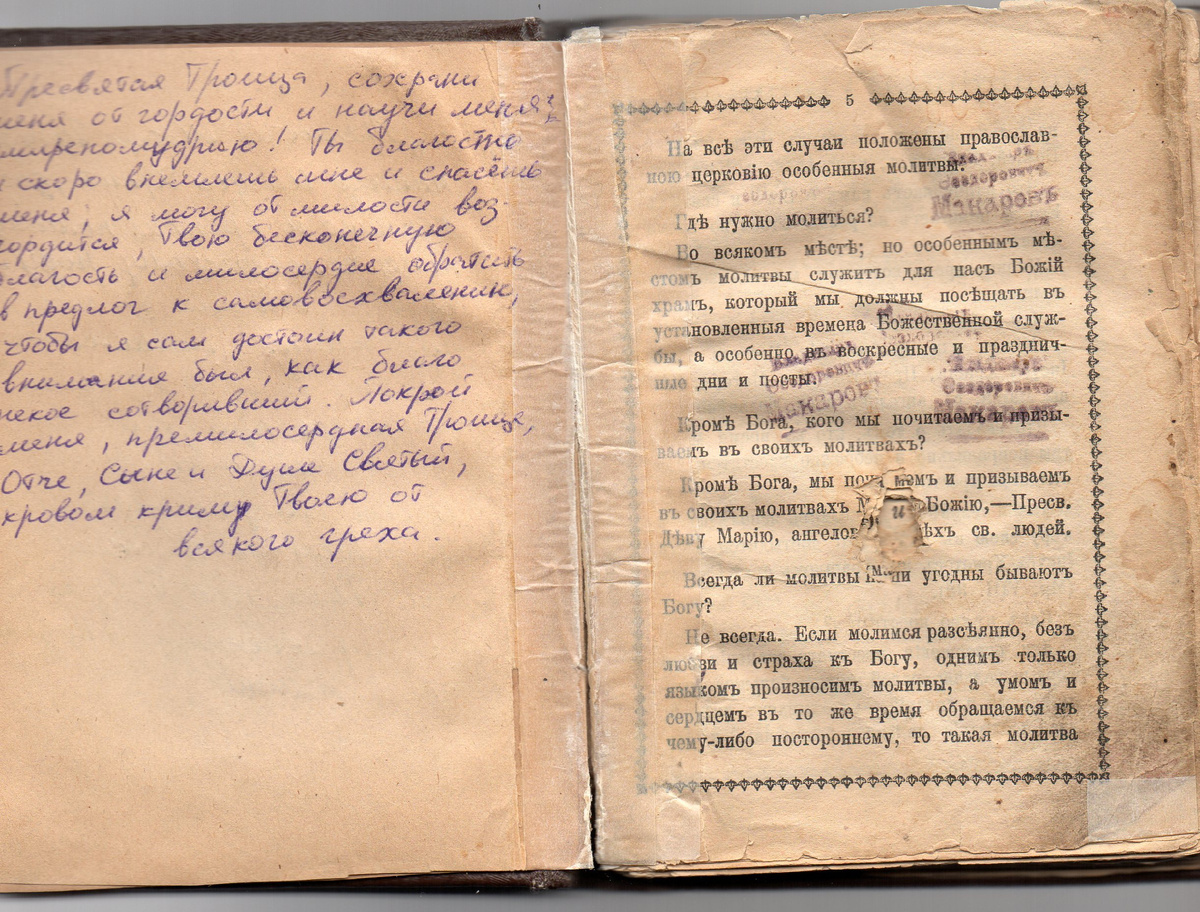 Пресвятая Троица, сохрани
меня от гордости и научи меня
смиреномудрию! Ты благостно
и скоро внемлешь мне и спасёшь
меня, я могу от милости воз-
гордится, Твою бесконечную
благость и милосердие обратить
в предлог к самовосхвалению,
чтобы я сам достоин такого
внимания был, как благо
некое сотворивший. Покрой
меня, премилосердная Троице,
Отче, Сыне и Душе Святый,
кровом крилу Твоею от
всякого греха.
5
На всѣ эти случаи положены православ-
ною церковію особенныя молитвы.
Гдѣ нужно молиться?
Во всякомъ мѣстѣ; но особеннымъ мѣ-
стомъ молитвы служитъ для насъ Божій
храмъ, который мы должны посѣщать въ
установленныя времена Божественной служ-
бы, а особенно въ воскресные и празднич-
ные дни и посты.
Кромѣ Бога, кого мы почитаемъ и призы-
ваемъ въ своихъ молитвахъ?
Кромѣ Бога, мы емъ и призываемъ
въ своихъ молитвахъ Божію,—Пресв.
Дѣву Марію, ангелов ѣхъ св. людей.
Всегда ли молитвы угодны бываютъ
Богу?
Не всегда. Если молимся разсѣянно, безъ
любви и страха къ Богу, однимъ только
языкомъ произносимъ молитвы, а умомъ и
сердцемъ въ то же время обращаемся къ
чему-либо постороннему, то такая молитва
Владимiръ
Сидоровичъ
Макаровъ
Владимiръ
Сидоровичъ
Макаровъ
Владимiръ
Сидоровичъ